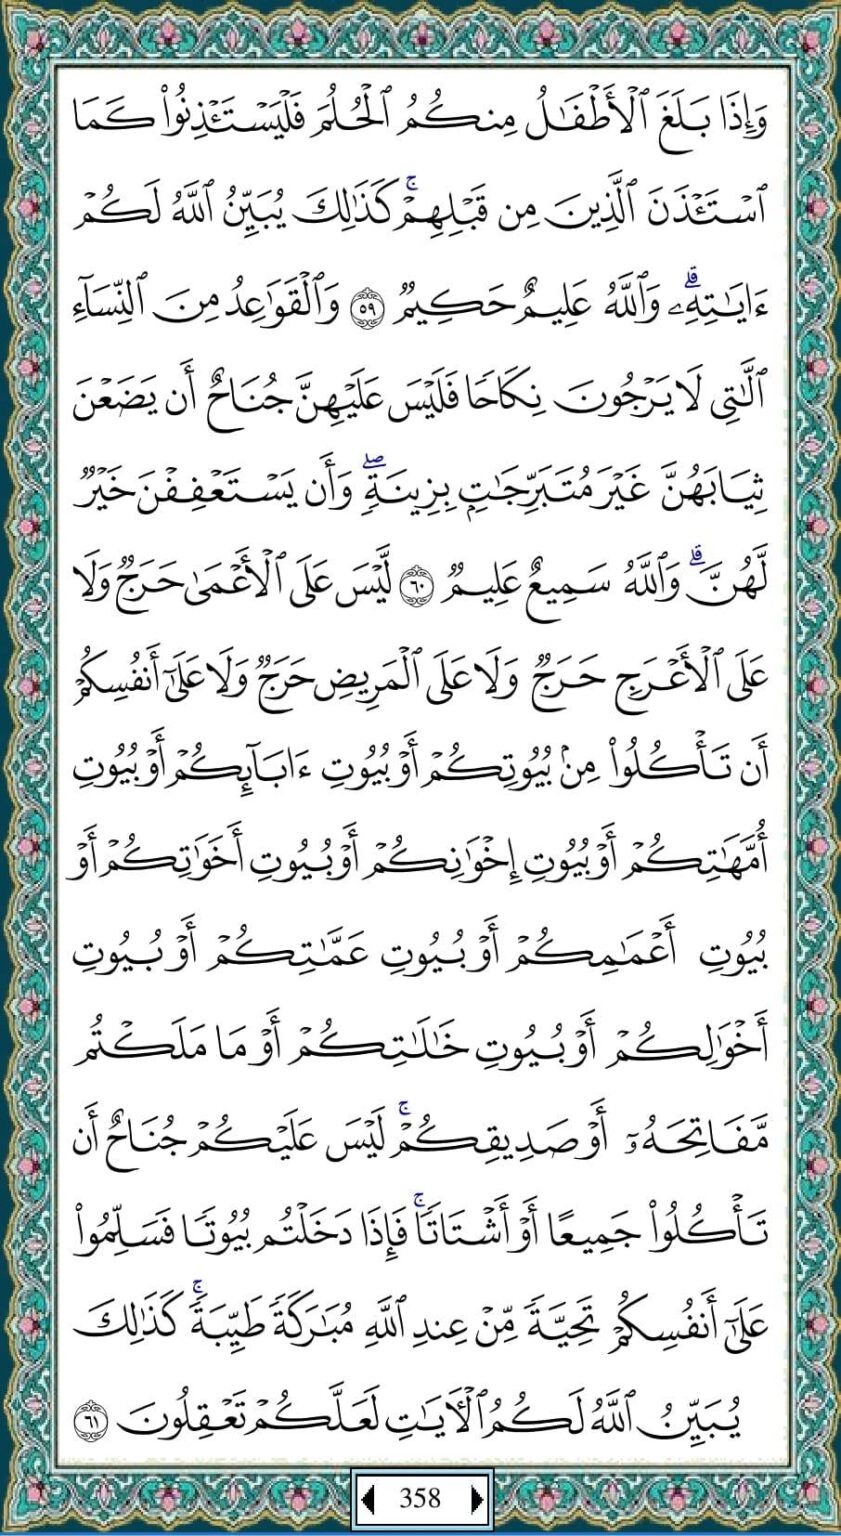 وَإِذَا بَلَغَ ٱلۡأَطۡفَٰلُ مِنكُمُ ٱلۡحُلُمَ فَلۡيَسۡتَـٔۡذِنُواْ كَمَا
ٱسۡتَـٔۡذَنَ ٱلَّذِينَ مِن قَبۡلِهِمۡۚ كَذَٰلِكَ يُبَيِّنُ ٱللَّهُ لَكُمۡ
ءَايَٰتِهِۦۗ وَٱللَّهُ عَلِيمٌ حَكِيمٞ ٥٩ وَٱلۡقَوَٰعِدُ مِنَ ٱلنِّسَآءِ
ٱلَّٰتِي لَا يَرۡجُونَ نِكَاحٗا فَلَيۡسَ عَلَيۡهِنَّ جُنَاحٌ أَن يَضَعۡنَ
ثِيَابَهُنَّ غَيۡرَ مُتَبَرِّجَٰتِۭ بِزِينَةٖۖ وَأَن يَسۡتَعۡفِفۡنَ خَيۡرٞ
لَّهُنَّۗ وَٱللَّهُ سَمِيعٌ عَلِيمٞ ٦٠ لَّيۡسَ عَلَى ٱلۡأَعۡمَىٰ حَرَجٞ وَلَا
عَلَى ٱلۡأَعۡرَجِ حَرَجٞ وَلَا عَلَى ٱلۡمَرِيضِ حَرَجٞ وَلَا عَلَىٰٓ أَنفُسِكُمۡ
أَن تَأۡكُلُواْ مِنۢ بُيُوتِكُمۡ أَوۡ بُيُوتِ ءَابَآئِكُمۡ أَوۡ بُيُوتِ
أُمَّهَٰتِكُمۡ أَوۡ بُيُوتِ إِخۡوَٰنِكُمۡ أَوۡ بُيُوتِ أَخَوَٰتِكُمۡ أَوۡ
بُيُوتِ أَعۡمَٰمِكُمۡ أَوۡ بُيُوتِ عَمَّٰتِكُمۡ أَوۡ بُيُوتِ
أَخۡوَٰلِكُمۡ أَوۡ بُيُوتِ خَٰلَٰتِكُمۡ أَوۡ مَا مَلَكۡتُم
مَّفَاتِحَهُۥٓ أَوۡ صَدِيقِكُمۡۚ لَيۡسَ عَلَيۡكُمۡ جُنَاحٌ أَن
تَأۡكُلُواْ جَمِيعًا أَوۡ أَشۡتَاتٗاۚ فَإِذَا دَخَلۡتُم بُيُوتٗا فَسَلِّمُواْ
عَلَىٰٓ أَنفُسِكُمۡ تَحِيَّةٗ مِّنۡ عِندِ ٱللَّهِ مُبَٰرَكَةٗ طَيِّبَةٗۚ كَذَٰلِكَ
يُبَيِّنُ ٱللَّهُ لَكُمُ ٱلۡأٓيَٰتِ لَعَلَّكُمۡ تَعۡقِلُونَ ٦١
358